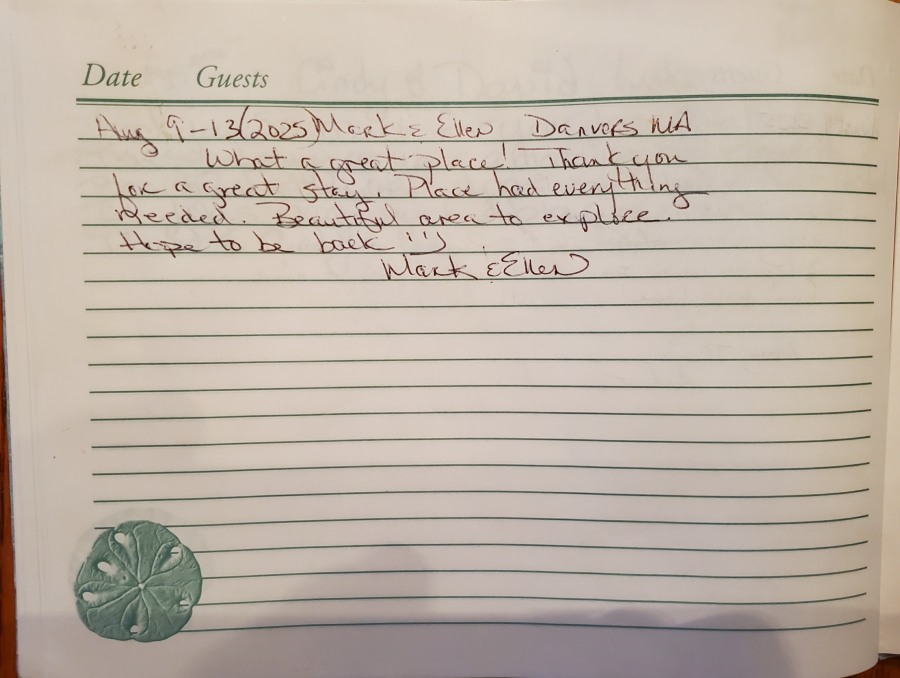 Date Guests
Aug 9-13 (2025) Mark & Ellen Danvers MA
What a great place! Thank you
for a great stay. Place had everything
needed. Beautiful area to explore.
Hope to be back :)
Mark & Ellen